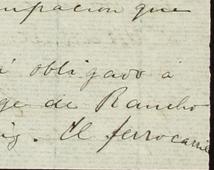 upación que
á obligado á
ge de Rancho
ig. El ferrocarril